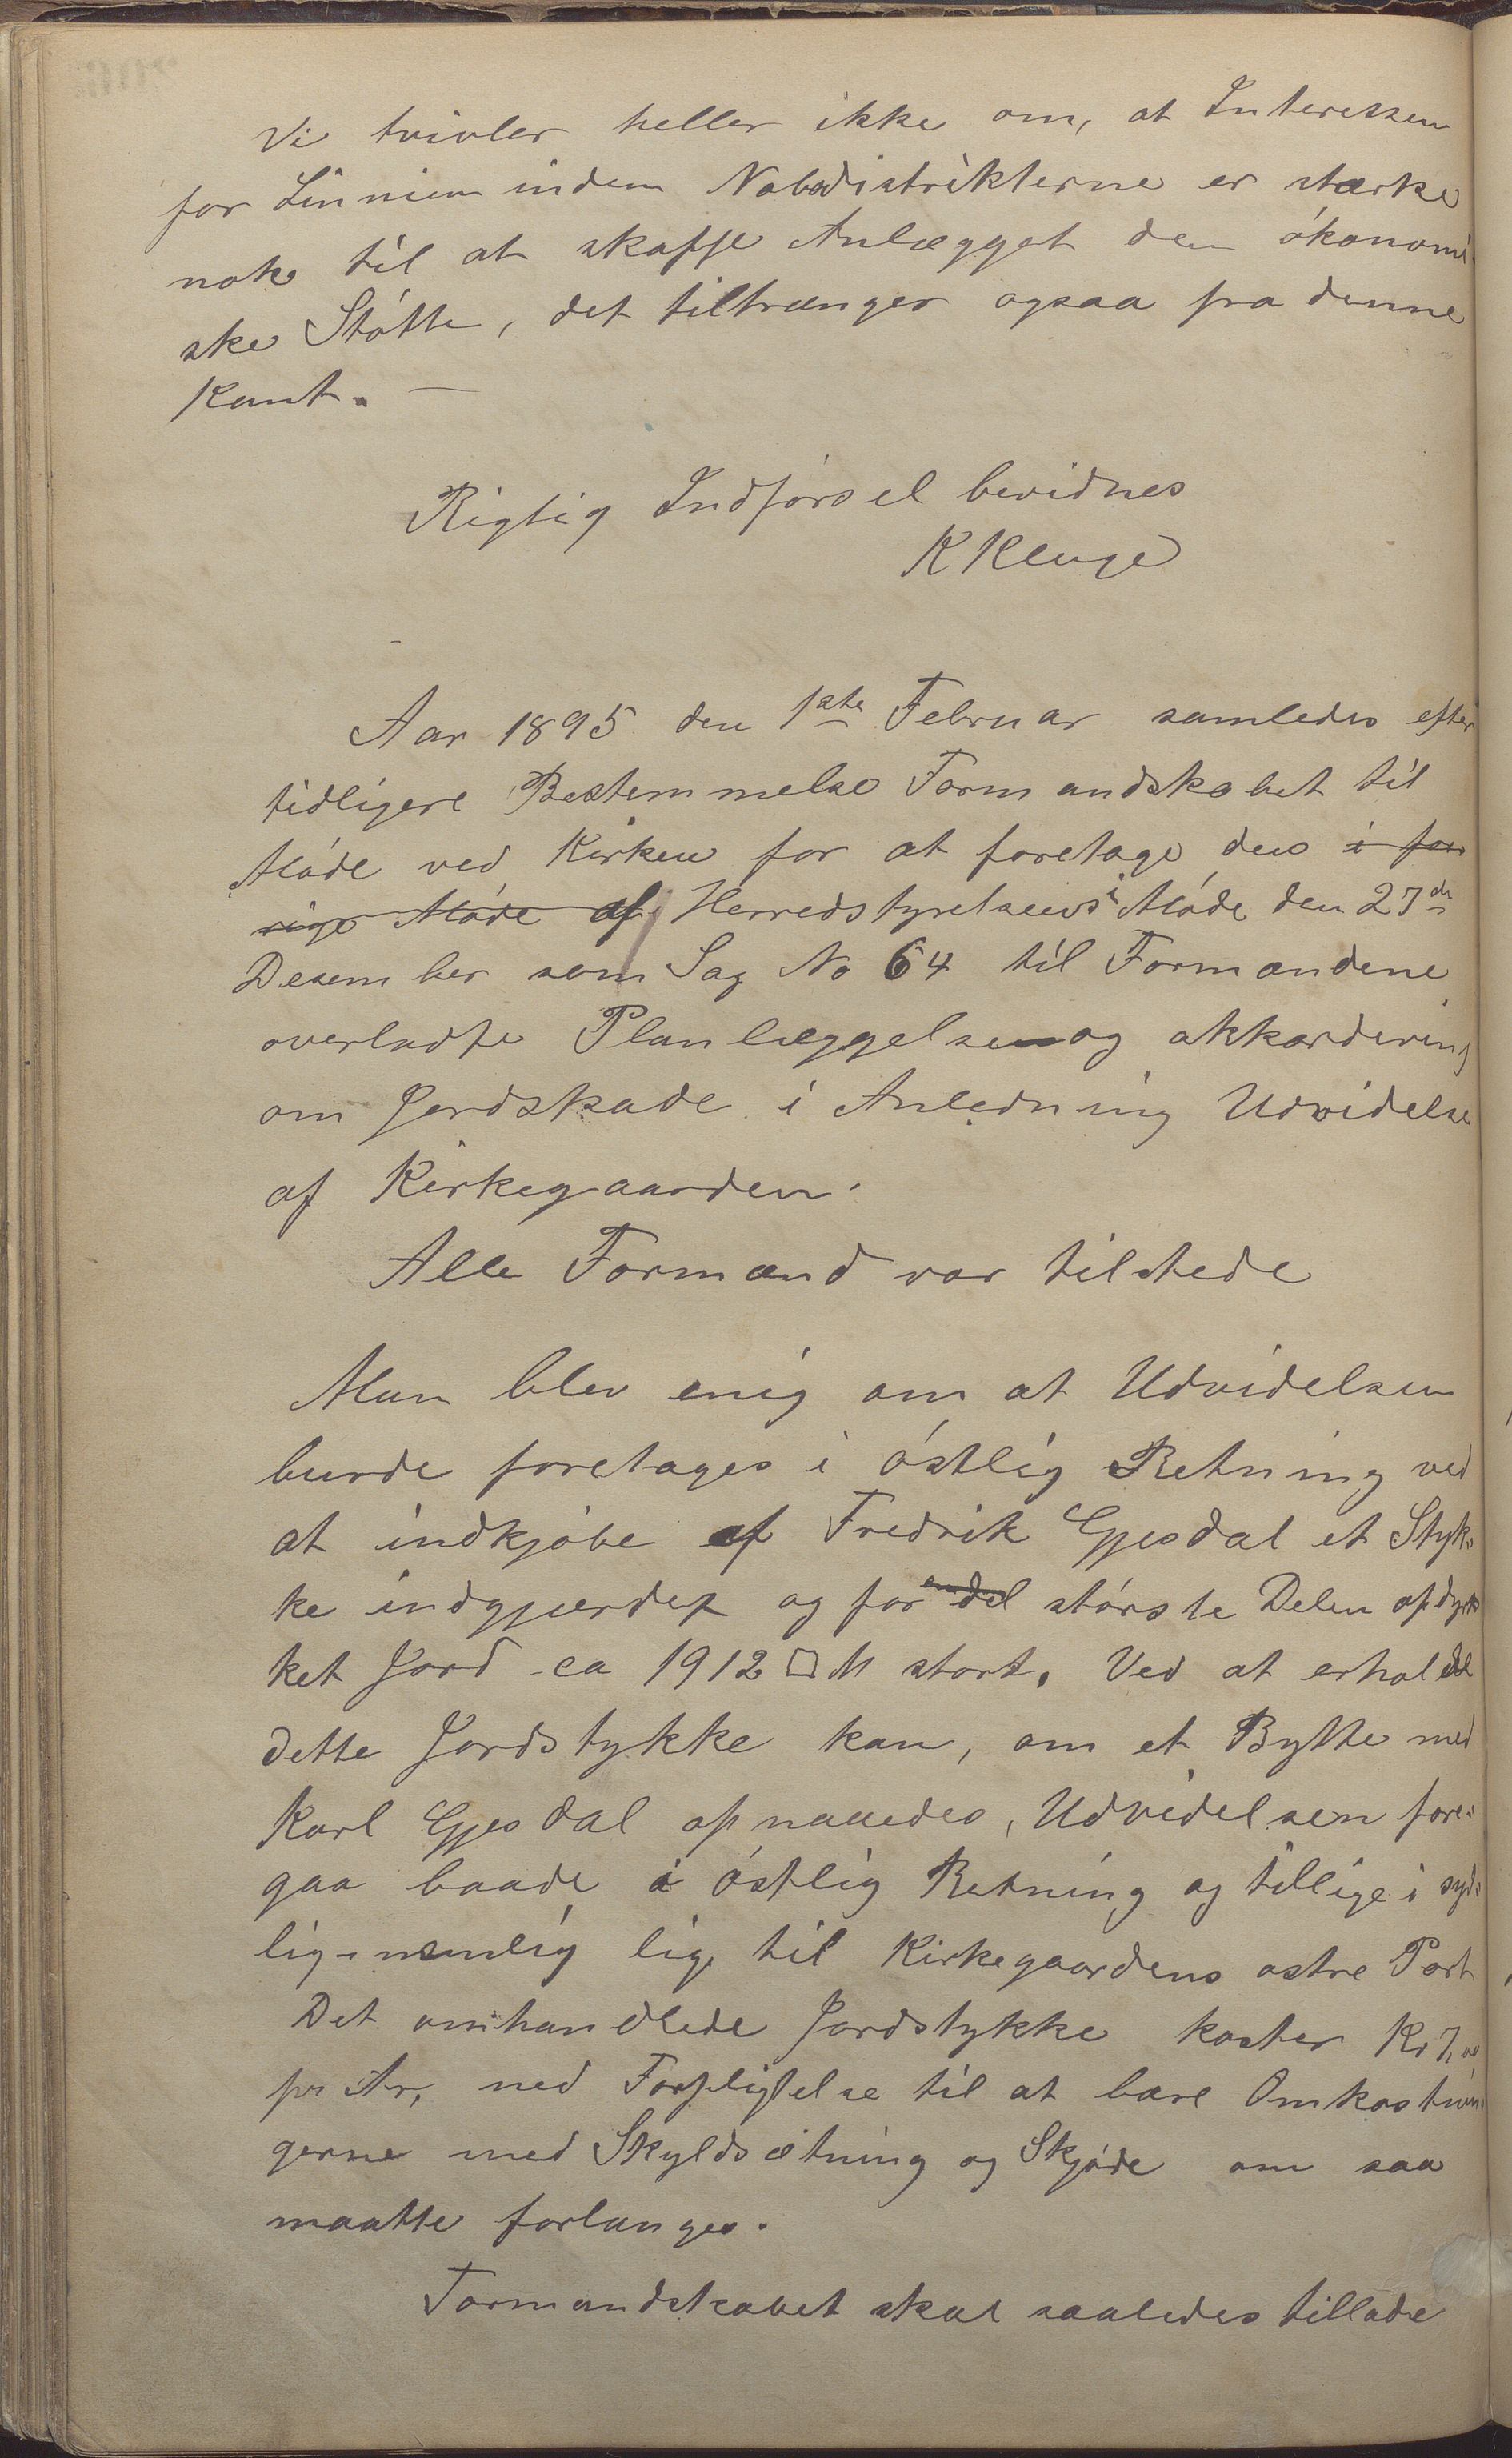 Vi tvivler heller ikke om, at Interessen
for Linnien inden Nabodistrikterne er stærke
nok til at skaffe Anlægget den økonomi
ske Støtte, det tiltrænger ogsaa fra denne
Kant. —
Rigtig Indførsel bevidnes
K Kluge
Aar 1895 den 1ste Februar samledes efter
tidligere Bestemmelse Formandskabet til
Møde ved Kirken for at foretage den i for
rige Møde af Herredstyrelsens i Møde den 27de
Desember som Sag No 64 til Formændene
overladte Planlæggelse og akkordering
om Jordskade i Anledning Udvidelse
af Kirkegaarden.
Alle Formænd var tilstede
Man blev enig om at Udvidelsen
burde foretages i østlig Retning ved
at indkjøbe af Fredrik Gjesdal et Styk-
ke indgjærdet og for en del største Delen opdyr
ket Jord ca 1912 □ M stort. Ved at erholde
dette Jordstykke kan, om et Bytte med
Karl Gjesdal opnaaedes, Udvidelsen fore-
gaa baade i østlig Retning og tillige i syd-
lig - nemlig lige til Kirkegaardens østre Port
Det omhandlede Jordstykke koster Kr 7,00
pr Ar, med Forpligtelse til at bære Omkostnin
gerne med Skyldsætning og Skjøde om saa
maatte forlanges.
Formandskabet skal saaledes tillade